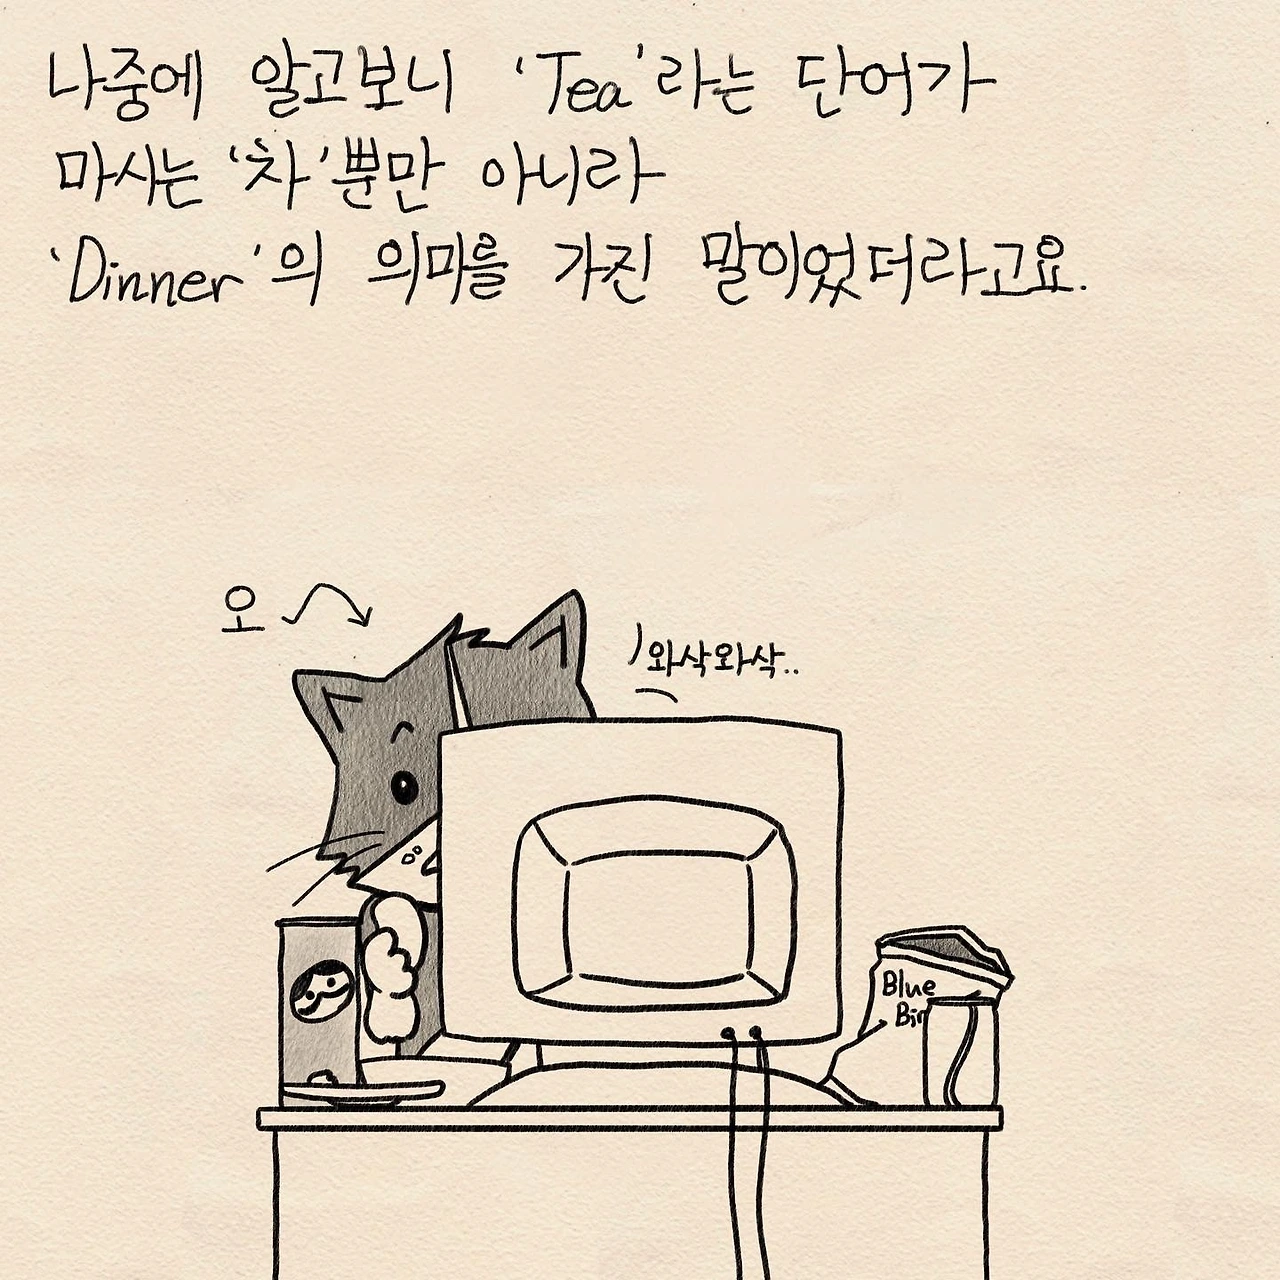 나중에 알고보니 'Tea'라는 단어가
마시는 '차'뿐만 아니라
'Dinner'의 의미를 가진 말이었더라고요.
오
와삭와삭..
Blue
Bir